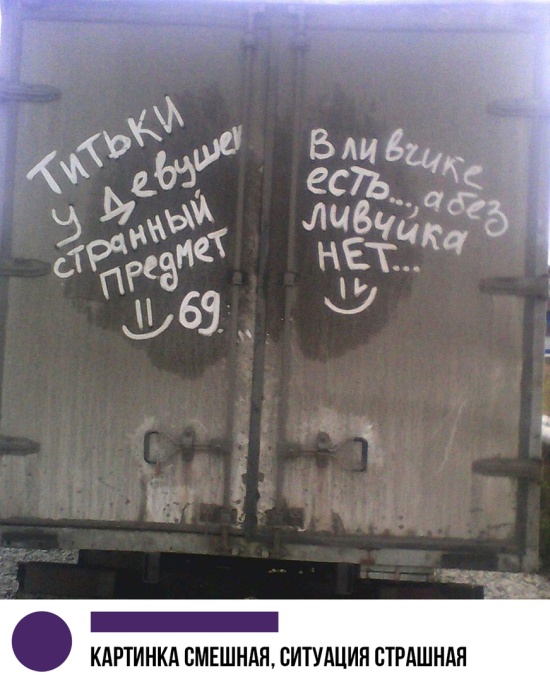 Титьки
у девушек
странный
предмет
69
В ливчике
есть..., а без
ливчика
НЕТ...
КАРТИНКА СМЕШНАЯ, СИТУАЦИЯ СТРАШНАЯ